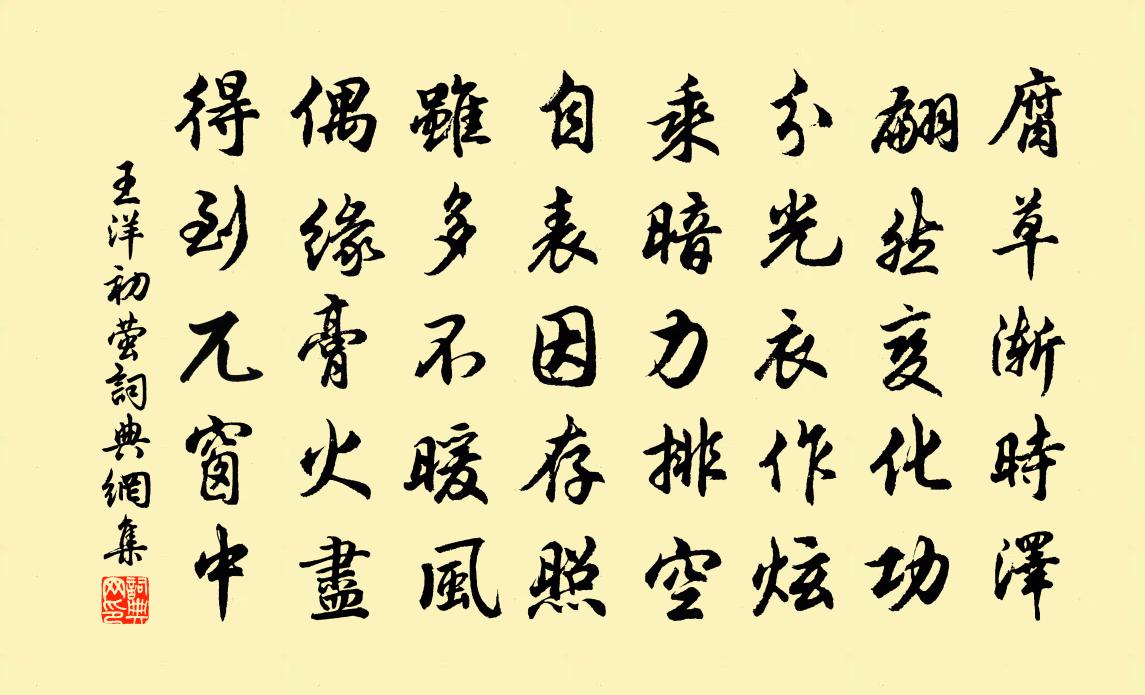 腐草漸時澤
翩然變化功
分光衣作炫
乘暗力排空
自表因存照
雖多不暖風
偶緣膏火盡
得到兀窗中
王洋初萤詞典網集
詞典网印